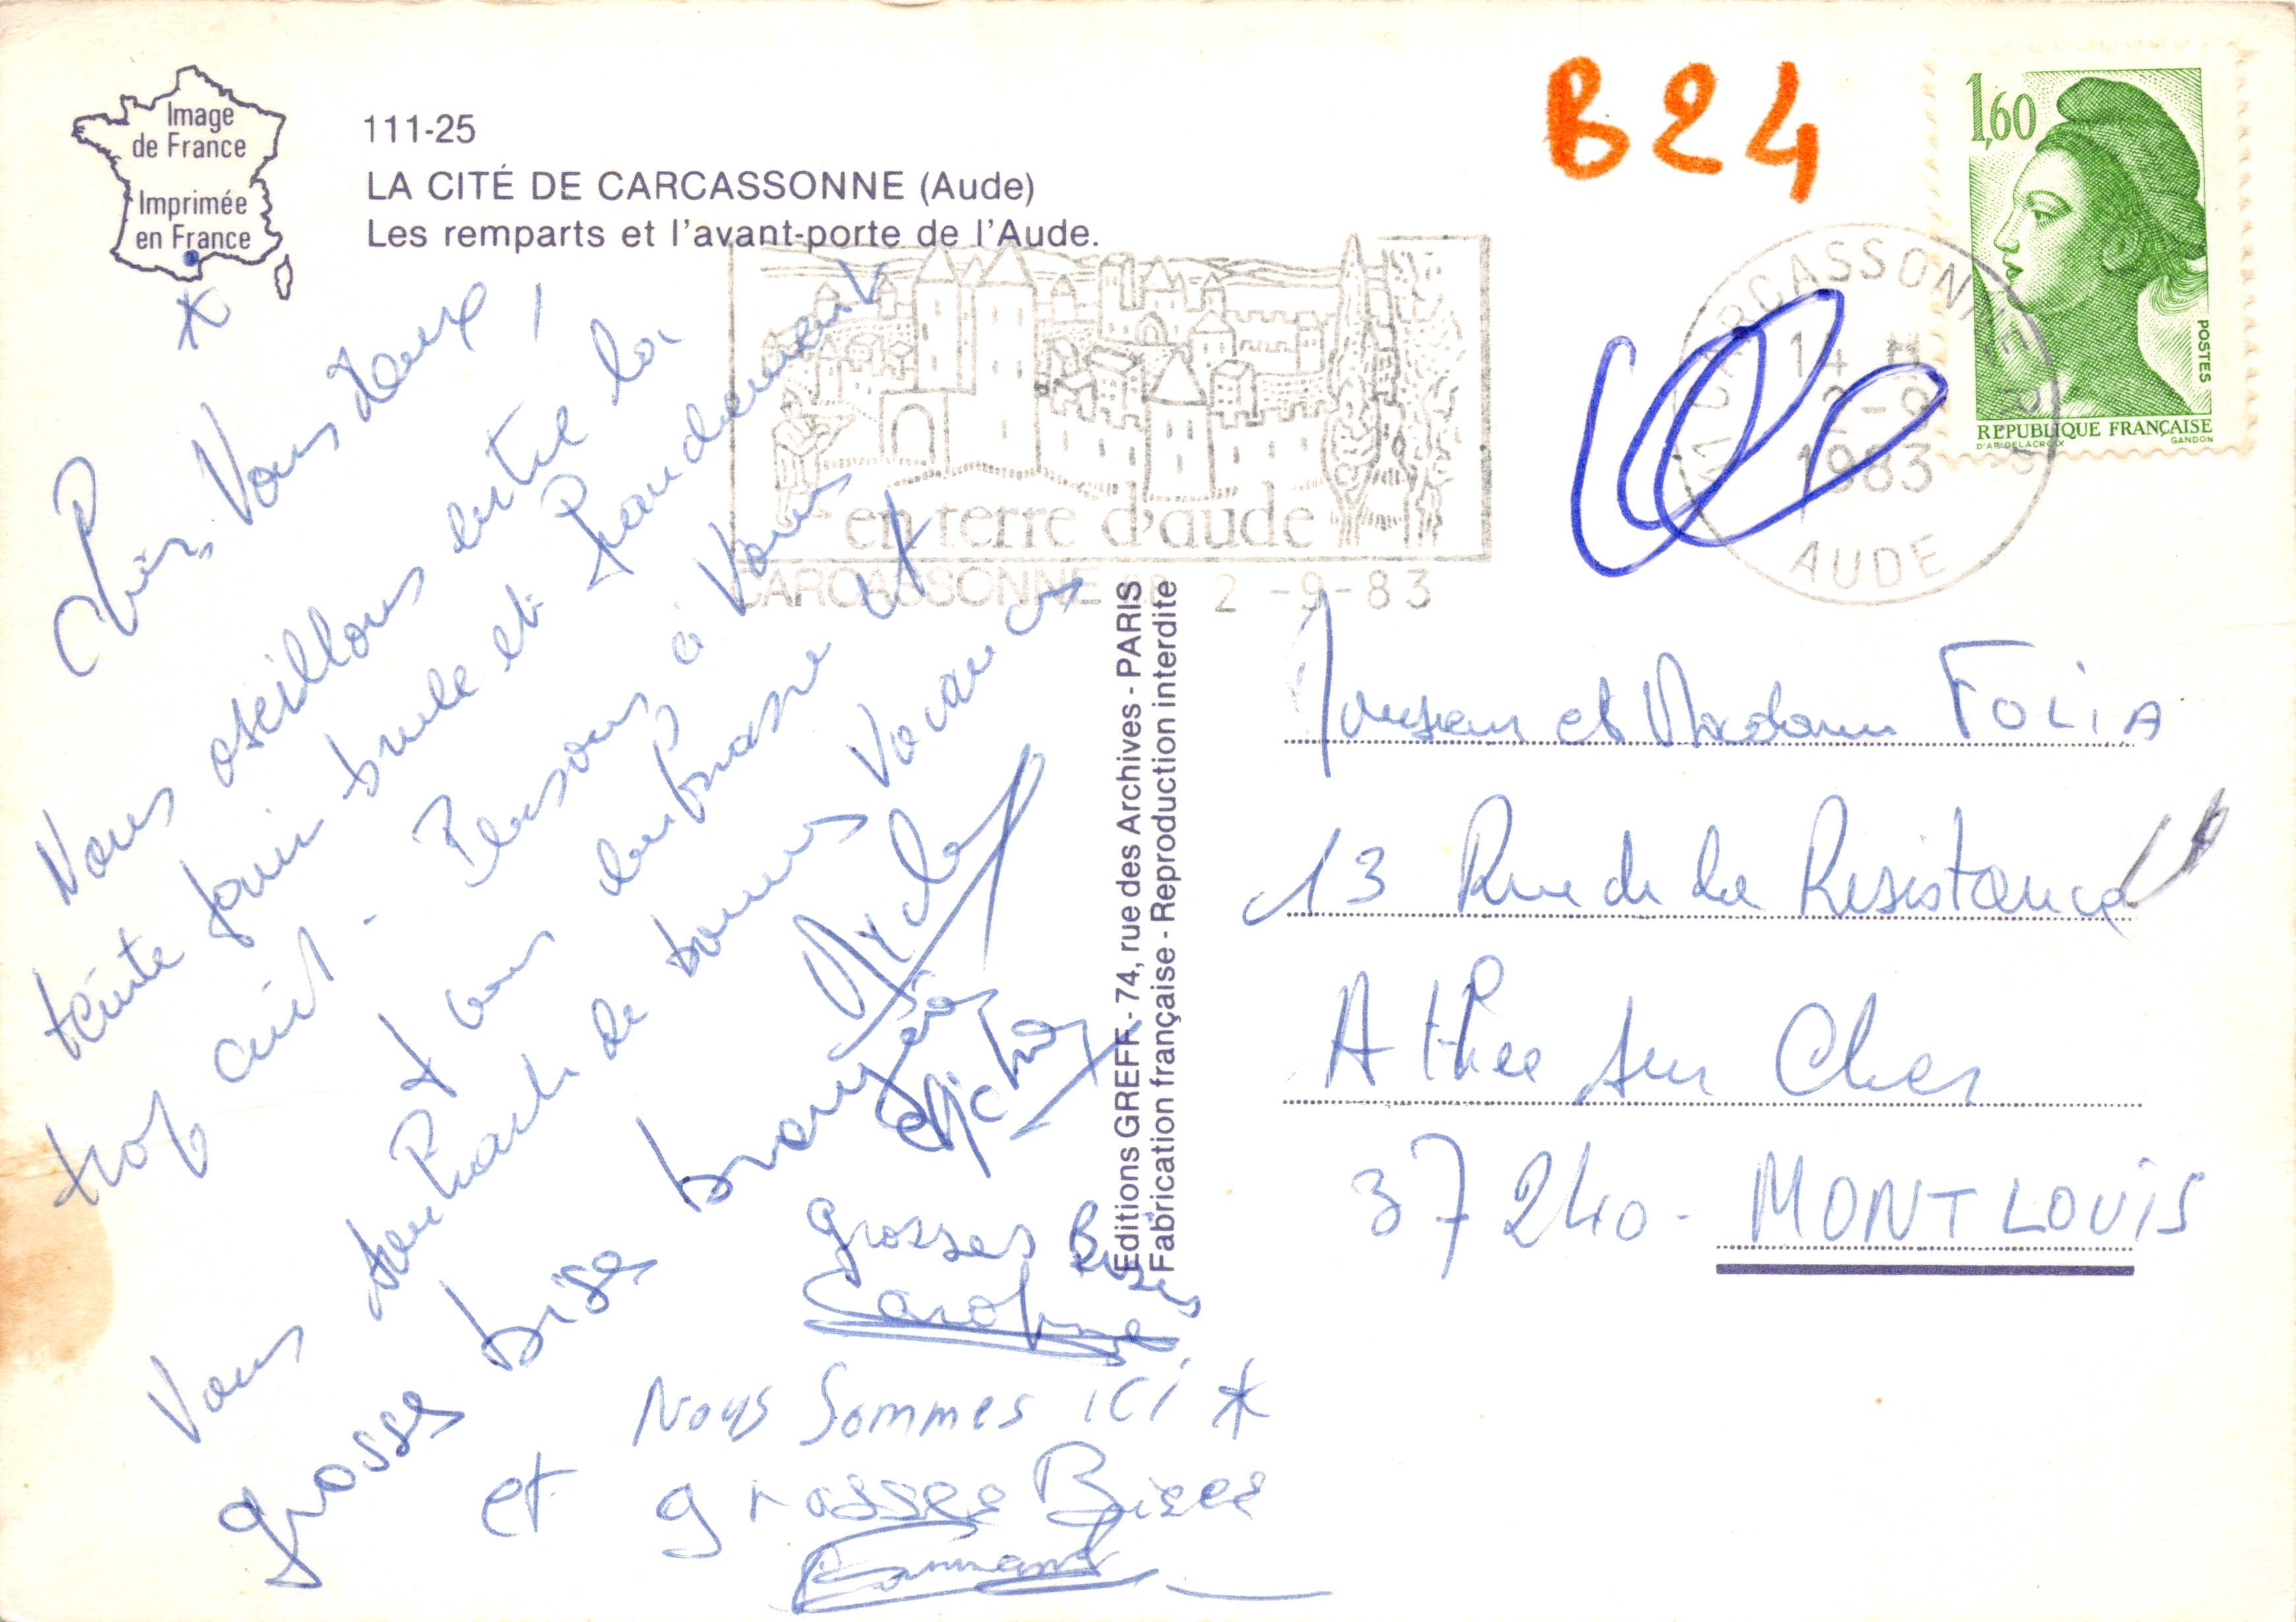 Image
de France
Imprimée
en France
*
111-25
LA CITÉ DE CARCASSONNE (Aude)
Les remparts et l'avant-porte de l'Aude.
B24
1,60
POSTES
REPUBLIQUE FRANÇAISE
D'AP. DELACROIX GANDON
CARCASSONNE
14 H
2-9
1983
AUDE
en terre d'aude
CARCASSONNE 2 -9-83
Vous deux,
Nous oseillons entre la
teinte pain brule et
trop cuit. Pensons à Vous
Vous
de bonnes Vacances
grosses bises
Michel
grosses Bises
Caroline
Nous Sommes ici *
et grosses Bises
Editions GREFF - 74, rue des Archives - PARIS
Fabrication française - Reproduction interdite
Monsieur et Madame FOLIA
13 Rue de la Resistance
Athee sur Cher
37240 - MONTLOUIS